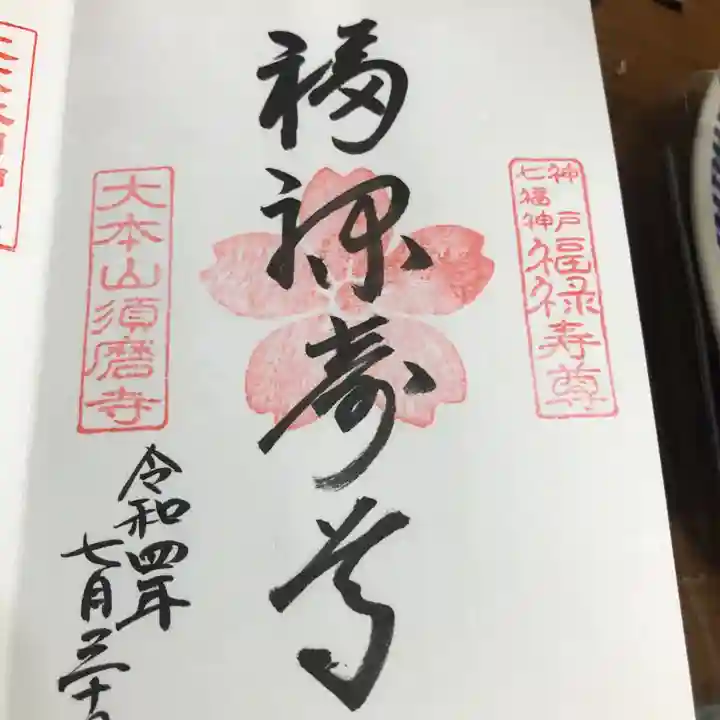 神戸
七福神
福禄寿尊
福禄寿尊
大本山須磨寺
令和四年
七月三十